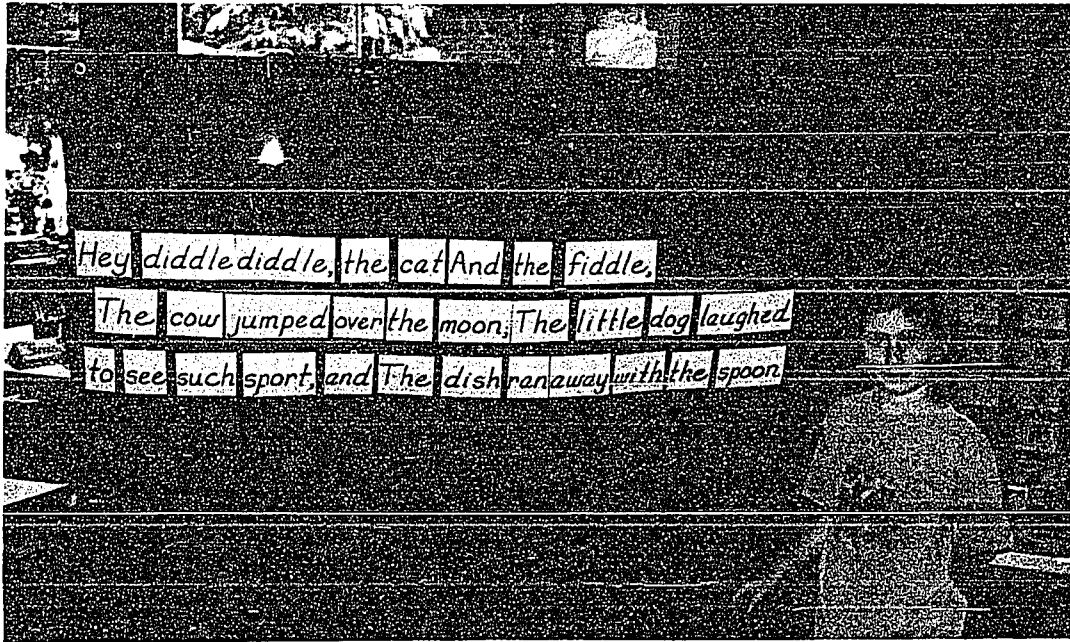 Hey diddle diddle, the cat And the fiddle,
The cow jumped over the moon, The little dog laughed
to see such sport, and The dish ran away with the spoon